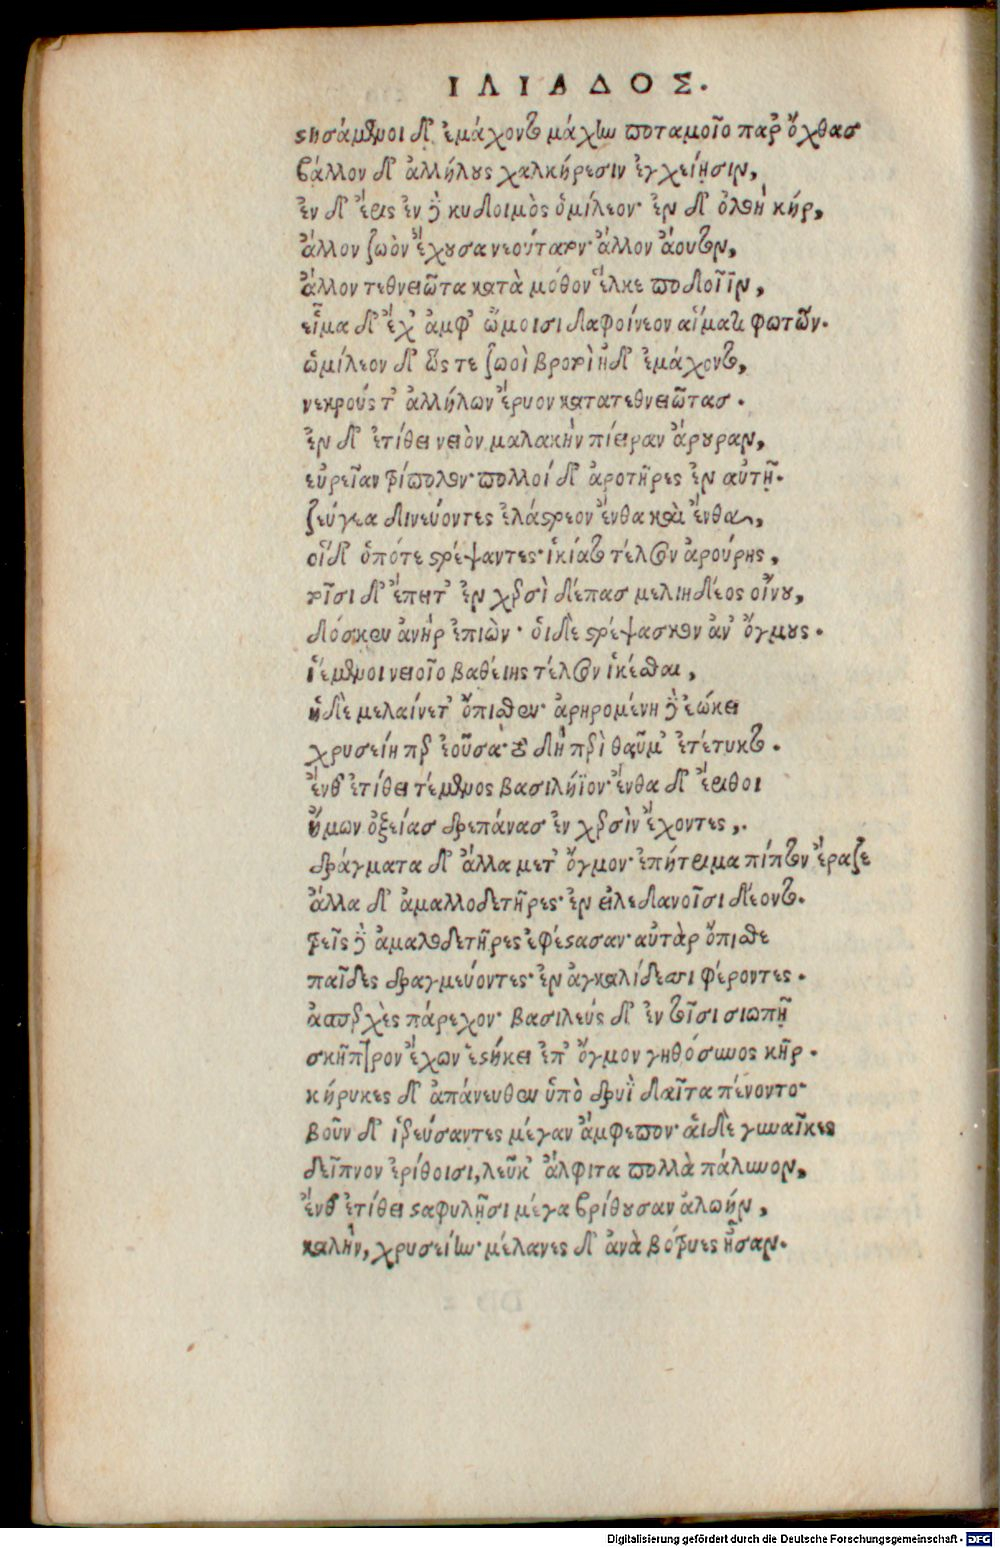 ΙΛΙΑΔΟΣ.
στησάμενοι δ' ἐμάχοντο μάχην ποταμοῖο παρ' ὄχθας
βάλλον δ' ἀλλήλους χαλκήρεσιν ἐγχείησιν,
ἐν δ' ἔρις ἐν δὲ κυδοιμὸς ὁμίλεον· ἐν δ' ὀλοὴ κήρ,
ἄλλον ζωὸν ἔχουσα νεούτατον· ἄλλον ἄουτον,
ἄλλον τεθνειῶτα κατὰ μόθον ἕλκε ποδοῖϊν,
εἷμα δ' ἔχ' ἀμφ' ὤμοισι δαφοίνεον αἵματι φωτῶν.
ὡμίλεον δ' ὥς τε ζωοὶ βροτοὶ ἠδ' ἐμάχοντο,
νεκρούς τ' ἀλλήλων ἔρυον κατατεθνειῶτας.
ἐν δ' ἐτίθει νειὸν μαλακὴν πίειραν ἄρουραν,
εὐρεῖαν τρίπολον· πολλοί δ' ἀροτῆρες ἐν αὐτῇ.
ζεύγεα δινεύοντες ἐλάστρεον ἔνθα καὶ ἔνθα,
οἵδ' ὁπότε στρέψαντες· ἱκίατο τέλσον ἀρούρης,
τοῖσι δ' ἔπειτ' ἐν χερσὶ δέπας μελιηδέος οἴνου,
δόσκεν ἀνὴρ ἐπιὼν· οἱ δὲ στρέψασκον ἀν' ὄγμους.
ἱέμενοι νειοῖο βαθείης τέλσον ἱκέσθαι,
ἡ δὲ μελαίνετ' ὄπισθεν· ἀρηρομένη δὲ ἐώκει
χρυσείη περ ἐοῦσα· τὸ δὴ περὶ θαῦμ' ἐτέτυκτο.
ἐνδ' ἐτίθει τέμενος βασιλήϊον· ἔνθα δ' ἔριθοι
ἤμων ὀξείας δρεπάνας ἐν χερσὶν ἔχοντες,.
δράγματα δ' ἄλλα μετ' ὄγμον· ἐπήτριμα πίπτον ἔραζε
ἄλλα δ' ἀμαλλοδετῆρες· ἐν ἐλεδανοῖσι δέοντο.
τρεῖς δὲ ἀμαλοδετῆρες ἐφέστασαν· αὐτὰρ ὄπισθε
παῖδες δραγμεύοντες· ἐν ἀγκαλίδεσι φέροντες.
ἀσπερχὲς πάρεχον· βασιλεύς δ' ἐν τοῖσι σιωπῇ
σκῆπτρον ἔχων ἑστήκει ἐπ' ὄγμον γηθόσυνος κῆρ.
κήρυκες δ' ἀπάνευθεν ὑπὸ δρυῒ δαῖτα πένοντο·
βοῦν δ' ἱερεύσαντες μέγαν ἄμφεπον· αἱ δὲ γυναῖκες
δεῖπνον ἐρίθοισι, λεῦκ' ἄλφιτα πολλὰ πάλυνον,
ἐνδ' ἐτίθει σταφυλῇσι μέγα βρίθουσαν ἀλωήν,
καλὴν, χρυσείην· μέλανες δ' ἀνὰ βότρυες ἦσαν.
Digitalisierung gefördert durch die Deutsche Forschungsgemeinschaft - DFG